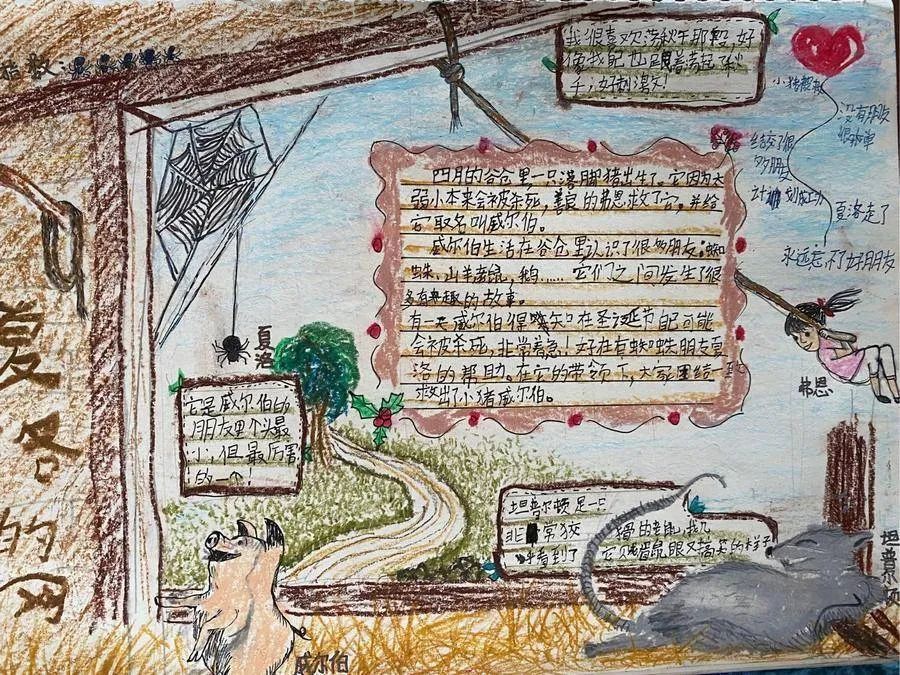 指数：
夏洛的网
我很喜欢荡秋千那段，好
像我自己跟着荡起了秋
千，好刺激！
小猪
没有朋友
很孤单
结交了很
多朋友
计划成功
夏洛走了
永远忘不了好朋友
四月的谷仓里一只落脚猪出生了。它因为太
弱小本来会被杀死，善良的弗恩救了它，并给
它取名叫威尔伯。
威尔伯生活在谷仓里认识了很多朋友：蜘
蛛，山羊，老鼠，鹅……它们之间发生了很
多有趣的故事。
有一天威尔伯得知在圣诞节自己可能
会被杀死，非常着急！好在有蜘蛛朋友夏
洛的帮助。在它的带领下，大家团结一至
救出了小猪威尔伯。
夏洛
它是威尔伯的
朋友里个头最
小，但最厉害
的一个！
弗恩
坦普尔顿是一只
非常狡猾的老鼠，我几
乎看到了它贼眉鼠眼又搞笑的样子
坦普尔顿
威尔伯